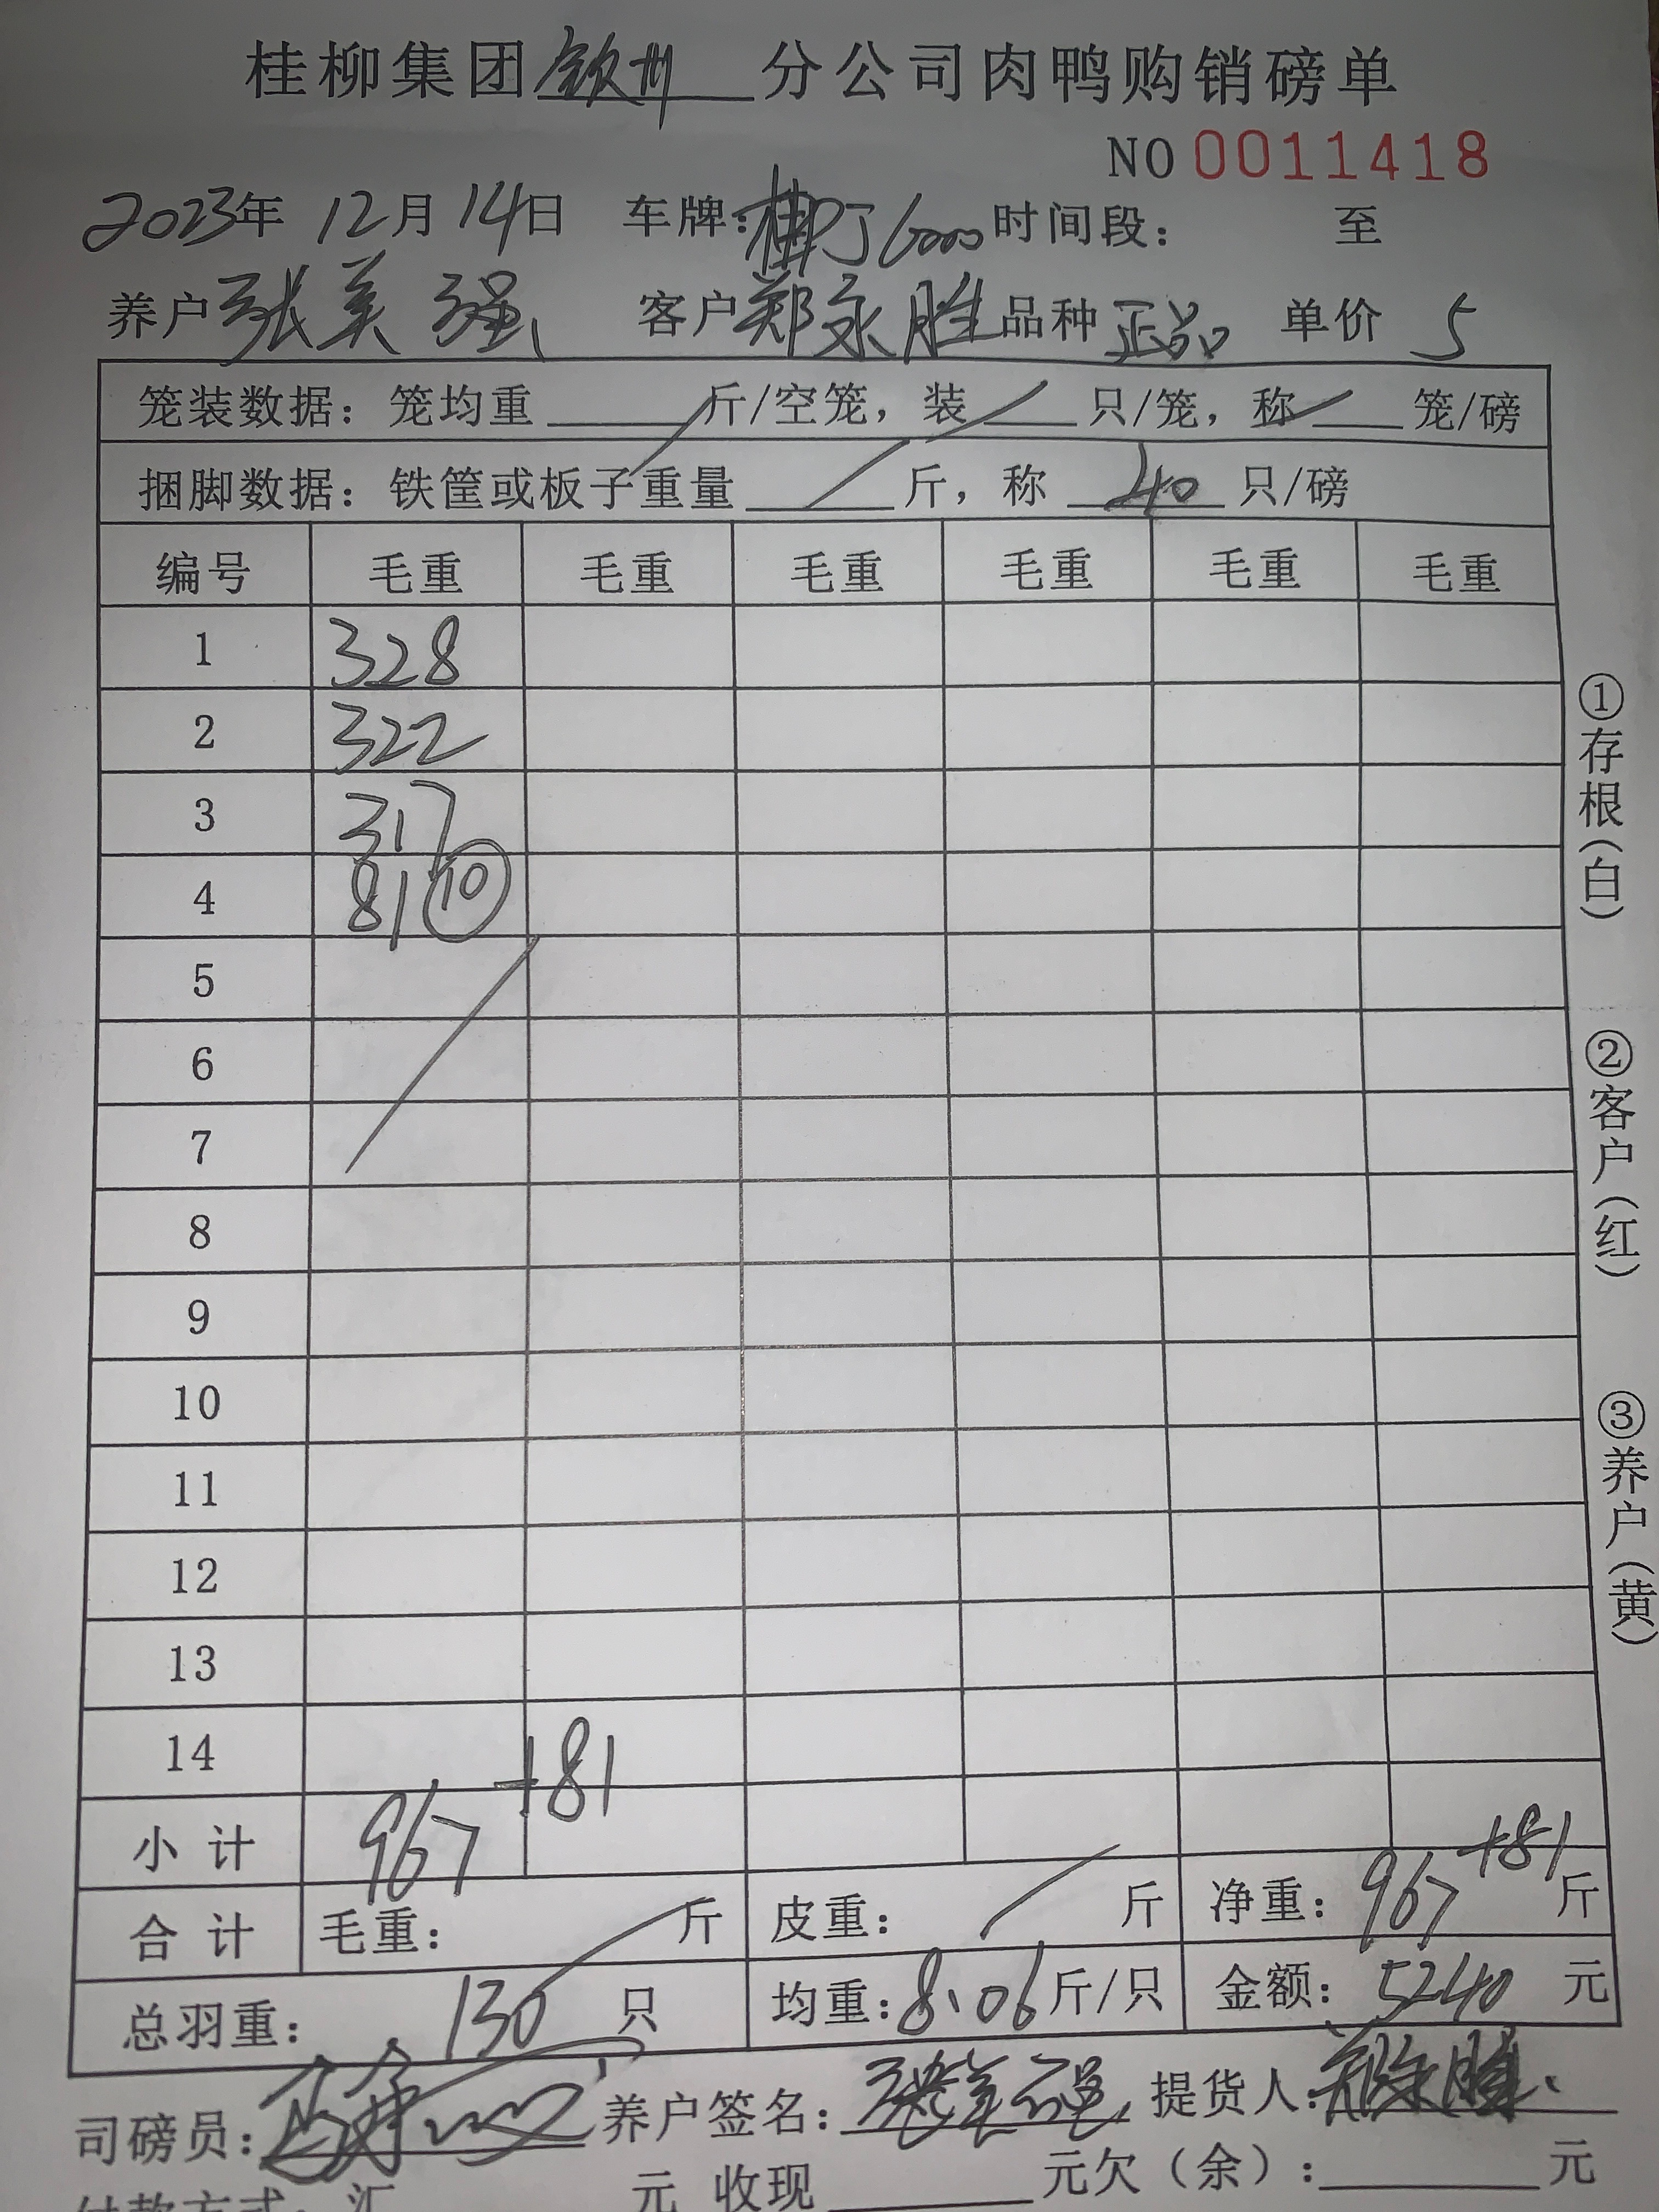 桂柳集团钦州分公司肉鸭购销磅单
NO 0011418
2023年 12月 14日 车牌: 时间段: 至
养户 张美强 客户 郑永胜 品种 正品 单价 5
笼装数据: 笼均重 斤/空笼, 装 只/笼, 称 笼/磅
捆脚数据: 铁筐或板子重量 斤, 称 40 只/磅
编号 毛重 毛重 毛重 毛重 毛重 毛重
1 328
2 322
3 317
4 81 ⑩
5
6
7
8
9
10
11
12
13
14
小计 967 +81
合计 毛重: 斤 皮重: 斤 净重: 967 +81 斤
总羽重: 130 只 均重: 8.06 斤/只 金额: 5240 元
司磅员: 养户签名: 张美强 提货人: 郑永胜
付款方式: 汇 元 收现 元欠(余): 元
①存根(白)
②客户(红)
③养户(黄)